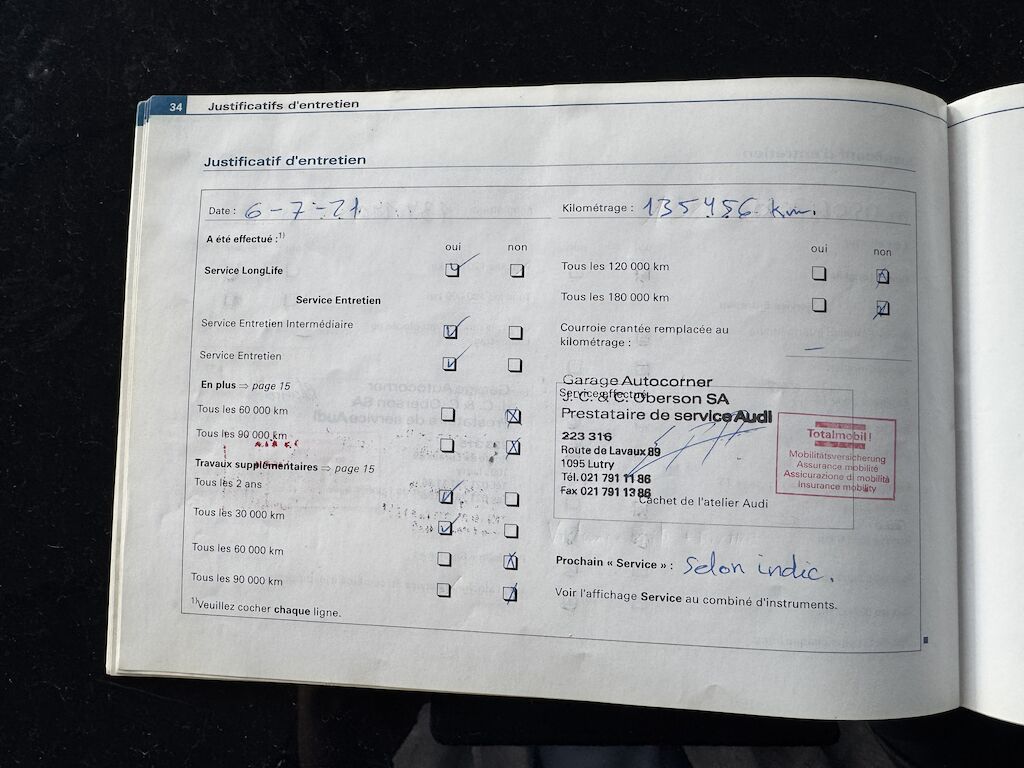 34 Justificatifs d'entretien
Justificatif d'entretien
Date : 6-7-21.
Kilométrage : 135456 km.
A été effectué :1)
oui non
Service LongLife
Service Entretien
Service Entretien Intermédiaire
Service Entretien
En plus ⇒ page 15
Tous les 60 000 km
Tous les 90 000 km
Travaux supplémentaires ⇒ page 15
Tous les 2 ans
Tous les 30 000 km
Tous les 60 000 km
Tous les 90 000 km
1)Veuillez cocher chaque ligne.
oui non
Tous les 120 000 km
Tous les 180 000 km
Courroie crantée remplacée au
kilométrage : –
Service effectué
Garage Autocorner
J. C. & C. Oberson SA
Prestataire de service Audi
223 316
Route de Lavaux 89
1095 Lutry
Tél. 021 791 11 86
Fax 021 791 13 86
Cachet de l'atelier Audi
Totalmobil!
Mobilitätsversicherung
Assurance mobilité
Assicurazione di mobilità
Insurance mobility
Prochain « Service » : Selon indic.
Voir l'affichage Service au combiné d'instruments.